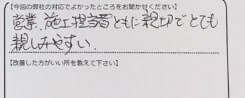 【今回の弊社の対応でよかったところをお聞かせください】
営業、施工担当者ともに親切でとても
親しみやすい。
【改善した方がいい所を教えて下さい】